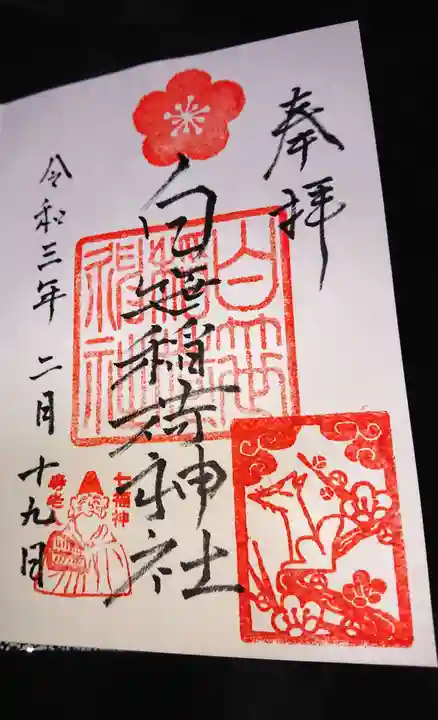 奉拝
白笹稲荷神社
令和三年 二月 十九日
白笹
稲荷
神社
七福神
寿老